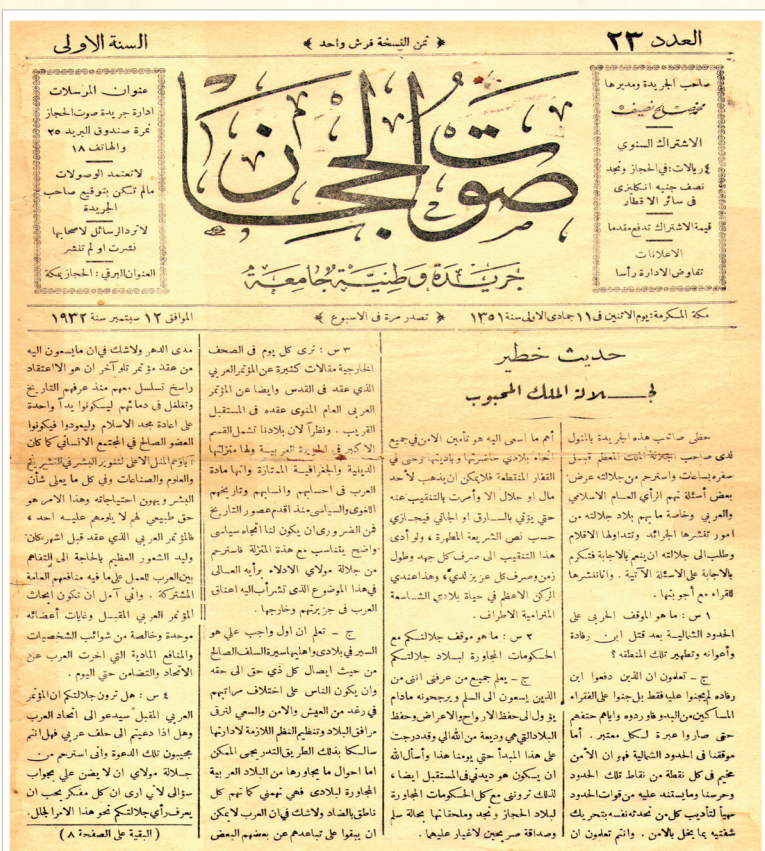 العدد ٢٣
﴿ ثمن النسخة قرش واحد ﴾
السنة الاولى
صاحب الجريدة ومديرها
محمد صالح نصيف
الاشتراك السنوي
٤ ريالات: في الحجاز ونجد
نصف جنيه انكليزى
فى سائر الاقطار
قيمة الاشتراك تدفع مقدما
الاعلانات
تفاوض الادارة رأسا
صوت الحجاز
جريدة وطنية جامعة
عنوان المرسلات
ادارة جريدة صوت الحجاز
نمرة صندوق البريد ٢٥
والهاتف ١٨
لا تعتمد الوصولات
مالم تكن بتوقيع صاحب
الجريدة
لا ترد الرسائل لاصحابها
نشرت او لم تنشر
العنوان البرقي : الحجاز بمكة
مكة المكرمة: يوم الاثنين فى ١١ جمادى الاولى سنة ١٣٥١
﴿ تصدر مرة فى الاسبوع ﴾
الموافق ١٢ سبتمبر سنة ١٩٣٢
حديث خطير
لجـــلالة الملك المحبوب
حظى صاحب هذه الجريدة بالمثول
لدى صاحب الجلالة الملك المعظم قبيل
سفره بساعات واسترحم من جلالته عرض
بعض أسئلة تهم الرأي العام الاسلامي
والعربي وخاصة ما يهم بلاد جلالته من
امور تنشرها الجرائد وتتداولها الاقلام
وطلب الى جلالته ان ينعم بالاجابة فتكرم
بالاجابة على الاسئلة الآتية . واناننشرها
للقراء مع أجوبتها .
١ س : ما هو الموقف الحربى على
الحدود الشمالية بعد قتل ابن رفادة
وأعوانه وتطهير تلك المنطقه ؟
ج - تعلمون ان الذين دفعوا ابن
رفاده لم يجنوا عليه فقط بل جنوا على الفقراء
المساكين من البدو فاوردوه واياهم حتفهم
حتى صاروا عبرة لكل معتبر . أما
موقفنا فى الحدود الشمالية فهو ان الأمن
مخيم فى كل نقطة من نقاط تلك الحدود
وحرسنا وما يستند عليه من قوات الحدود
مهيأ لتأديب كل من تحدثه نفسه بتحريك
شفتيه بما يخل بالامن . وانتم تعلمون ان
أهم ما اسعى اليه هو تأمين الامن فى جميع
انحاء بلادي حاضرتها وباديتها وحتى في
القفار المنقطعة فلا يمكن ان يذهب لأحد
مال او حلال الا وأمرت بالتنقيب عنه
حتي يؤتي بالسارق او الجاني فيجازي
حسب نص الشريعة المطهرة ، ولو أدى
هذا التنقيب الى صرف كل جهد وطول
زمن وصرف كل عزيز لدي، وهذا عندي
الركن الاعظم في حياة بلادي الشاسعة
المترامية الاطراف .
٢ س : ما هو موقف جلالتكم مع
الحكومات المجاورة لبلاد جلالتكم
ج - يعلم جميع من عرفنى انني من
الذين يسعون الى السلم ويرجحونه مادام
يؤول الى حفظ الارواح والاعراض وحفظ
البلاد التي هي وديعة من الله لي وقد درجت
على هذا المبدأ حتى يومنا هذا وأسأل الله
ان يسكون هو ديدني فى المستقبل ايضا ،
لذلك ترونني مع كل الحكومات المجاورة
لبلاد الحجاز ونجد وملحقاتها بحالة سلم
وصداقة صريحين لاغبار عليهما .
٣ س : نرى كل يوم فى الصحف
الخارجية مقالات كثيرة عن المؤتمر العربي
الذي عقد فى القدس وايضا عن المؤتمر
العربى العام المنوى عقده فى المستقبل
القريب . ونظراً لان بلادنا تشمل القسم
الاكبر فى الجزيرة العربية ولها منزلتها
الدينية والجغرافية الممتازة وانها مادة
العرب فى احسابهم وانسابهم وتاريخهم
اللغوى والسياسي منذ اقدم عصور التاريخ
فمن الضرورى ان يكون لنا اتجاه سياسى
واضح يتناسب مع هذة المنزلة فاسترحم
من جلالة مولاي الادلاء برأيه العالى
فى هذا الموضوع الذى تشرأب اليه اعناق
العرب فى جزيرتهم وخارجها .
ج - تعلم ان اول واجب علي هو
السير فى بلادى واهليها سيرة السلف الصالح
من حيث ايصال كل ذي حق الى حقه
وان يكون الناس على اختلاف مراتبهم
فى رغد من العيش والامن والسعي لترقى
مرافق البلاد وتنظيم النظم اللازمة لادارتها
سالكا بذلك الطريق التدريجى الممكن
اما احوال ما يجاورها من البلاد العربية
المجاورة لبلادى فهي تهمني كما تهم كل
ناطق بالضاد ولاشك في ان العرب لا يمكن
ان يبقوا على تباعدهم عن بعضهم البعض
مدى الدهر ولاشك فى ان ما يسعون اليه
من عقد مؤتمر تلو آخر ان هو الا اعتقاد
راسخ تسلسل معهم منذ عرفهم التاريخ
وتغلغل فى دمائهم ليسكونوا يداً واحدة
على اعادة مجد الاسلام وليعودوا فيكونوا
العضو الصالح في المجتمع الانسانى كما كان
آباؤهم المثل الاعلى لتنوير البشر فى التشريع
والعلوم والصناعات وفى كل ما يعلى شأن
البشر ويهون احتياجاته وهذا الامر هو
حق طبيعي لهم لا يلومهم عليه احد ،
فالمؤتمر العربي الذي عقد قبل اشهر كان
وليد الشعور العظيم بالحاجة الى التفاهم
بين العرب للعمل على ما فيه منافعهم العامة
المشتركة . وانى آمل ان تكون ابحاث
المؤتمر العربي المقبل وغايات أعضائه
موحدة وخالصة من شوائب الشخصيات
والمنافع المادية التي اخرت العرب عن
الاتحاد والتضامن حتي اليوم .
٤ س : هل ترون جلالتكم ان المؤتمر
العربي المقبل سيدعو الى اتحاد العرب
وهل اذا دعيتم الى حلف عربي فهل انتم
مجيبون تلك الدعوة وانى استرحم من
جلالة مولاي ان لا يضن علي بجواب
سؤالى لأني ارى ان كل مفكر يحب ان
يعرف رأي جلالتكم نحو هذا الامر الجلل .
( البقية على الصفحة ٨ )